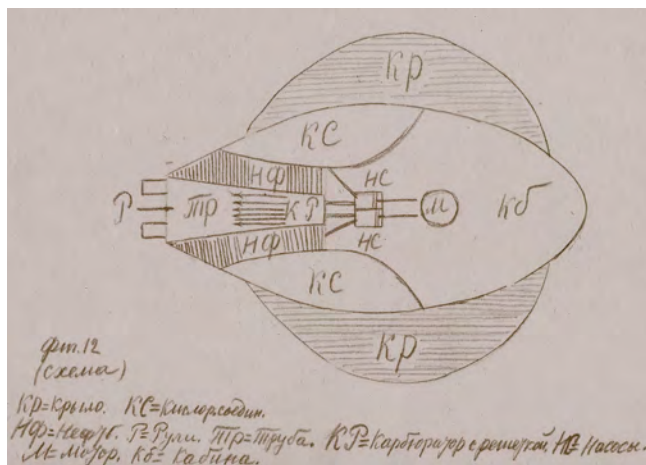 Кр
КС
НФ
НС
Р
Тр
КР
М
Кб
НФ
НС
КС
Кр
фит. 12
(схема)
Кр=Крыло. КС=Кислор.соедин.
НФ=Нефть. Р=Рули. Тр=Труба. КР=Карбюратор с решеткой. НС=Насосы.
М=Мотор. Кб=Кабина.